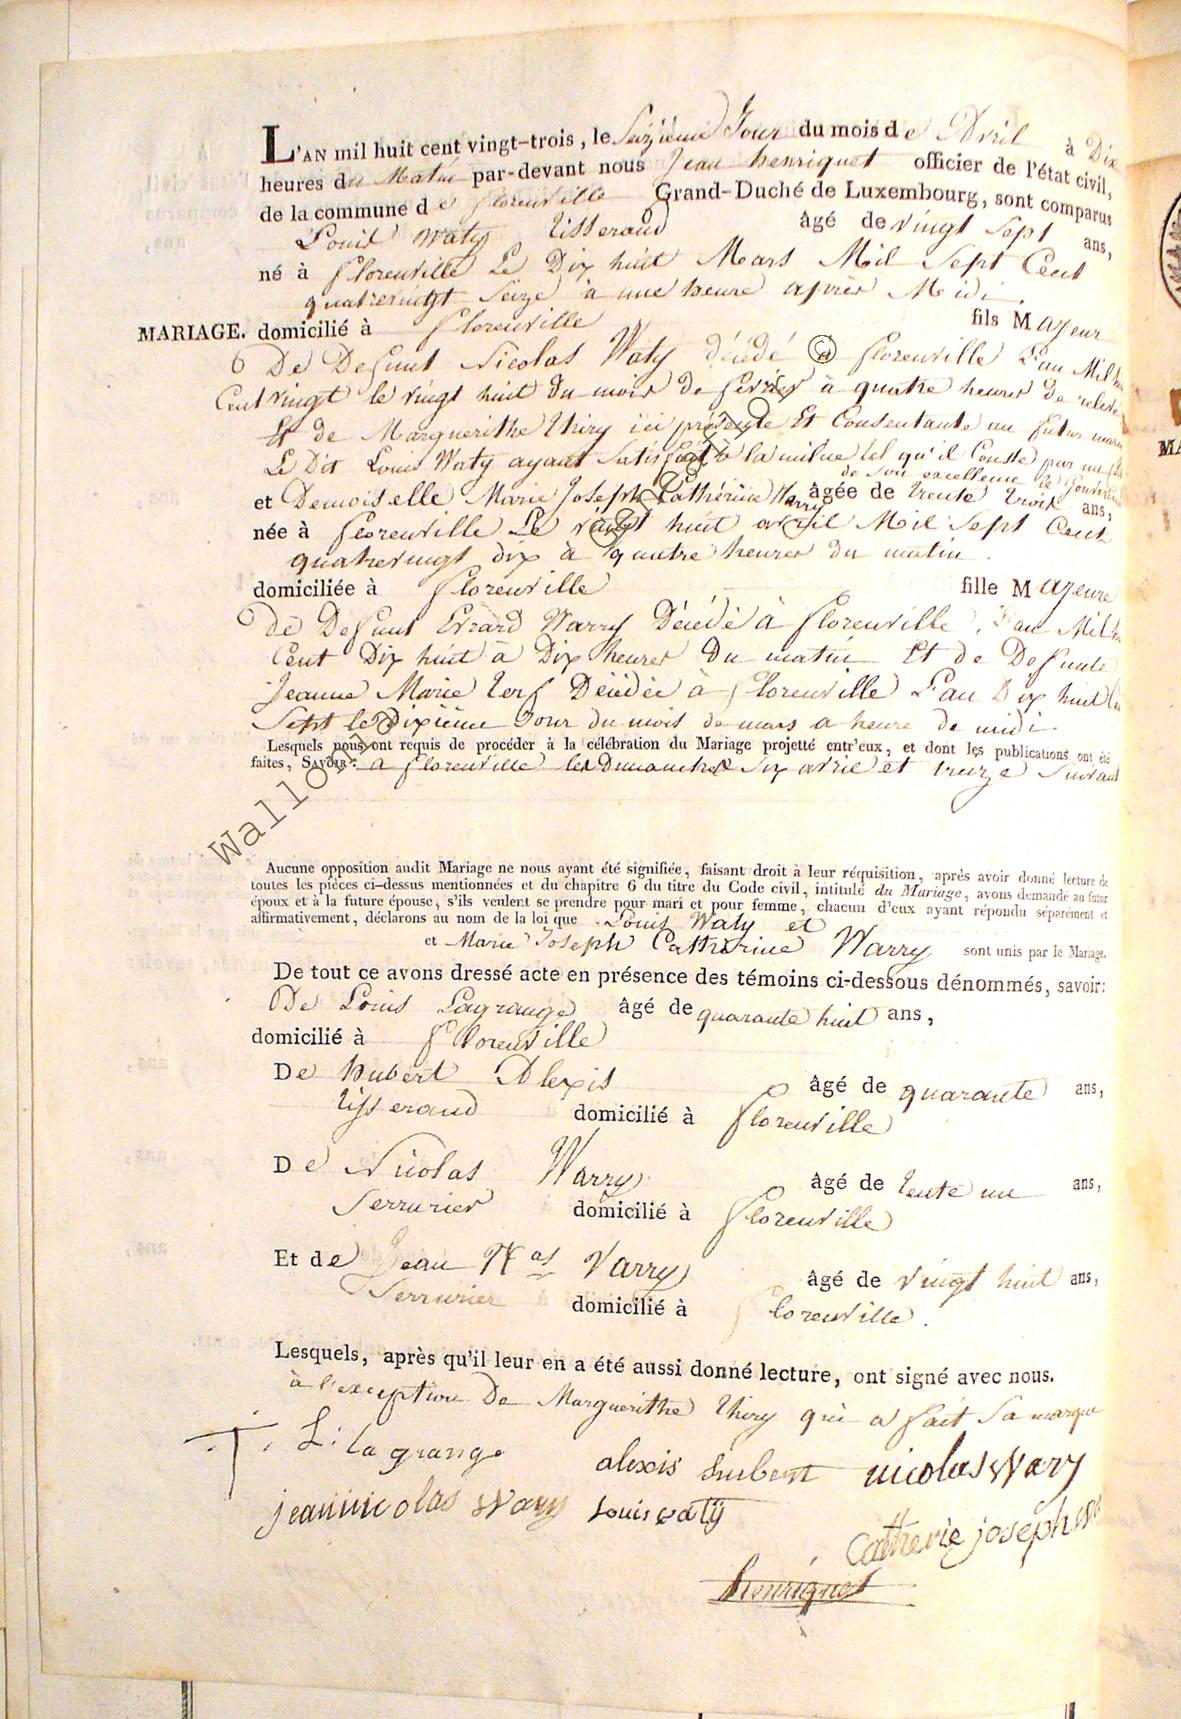 L'AN mil huit cent vingt-trois, le Seizieme Jour du mois de Avril à Dix
heures du Matin par-devant nous Jean henriquet officier de l'état civil,
de la commune de florenville Grand-Duché de Luxembourg, sont comparus
Louis Waty tisserand âgé de vingt sept ans,
né à florenville Le Dix huit Mars Mil Sept Cent
quatrevingt Seize à une heure après Midi.
MARIAGE. domicilié à florenville fils Majeur
De Defunt Nicolas Waty décédé a florenville L'an Mil
Cent vingt le vingt huit du mois de fevrier à quatre heures de relevé
Et de Marguerithe thiry ici présente Et Consentante au futur
Le Dit Louis Waty ayant Satisfait à la milice tel qu'il Conste par un
de Son excellence le Gouverneur
et Demoiselle Marie Joseph Cathérine Warry âgée de trente trois ans,
née à florenville Le vingt huit avril Mil Sept Cent
quatrevingt dix à quatre heures du matin.
domiciliée à florenville fille Majeure
de Defunt Evrard Warry Décédé à florenville, L'an Mil
Cent Dix huit à Dix heures Du matin Et de Defunte
Jeanne Marie terf Décédée à florenville L'an Dix huit
Sept le Dixième Jour du mois de mars a heure de midi
Lesquels nous ont requis de procéder à la célébration du Mariage projetté entr'eux, et dont les publications ont été
faites, SAVOIR: a florenville les Dimanches Six avril et treize Suivant
Aucune opposition audit Mariage ne nous ayant été signifiée, faisant droit à leur réquisition, après avoir donné lecture de
toutes les pièces ci-dessus mentionnées et du chapitre 6 du titre du Code civil, intitulé du Mariage, avons demandé au futur
époux et à la future épouse, s'ils veulent se prendre pour mari et pour femme, chacun d'eux ayant répondu séparément et
affirmativement, déclarons au nom de la loi que Louis Waty et
et Marie Joseph Catherine Warry sont unis par le Mariage.
De tout ce avons dressé acte en présence des témoins ci-dessous dénommés, savoir:
De Louis Lagrange âgé de quarante huit ans,
domicilié à florenville
De hubert Alexis âgé de quarante ans,
tisserand domicilié à florenville
De Nicolas Warry âgé de trente un ans,
Serrurier domicilié à florenville
Et de Jean Nas Varry âgé de vingt huit ans,
Serrurier domicilié à florenville.
Lesquels, après qu'il leur en a été aussi donné lecture, ont signé avec nous.
à l'exception De Marguerithe thiry qui a fait Sa marque
L: la grange alexis hubert nicolas wary
jean nicolas wary Louis waty
Catherie joseph
henriquet
Wallonia
Copyright ©